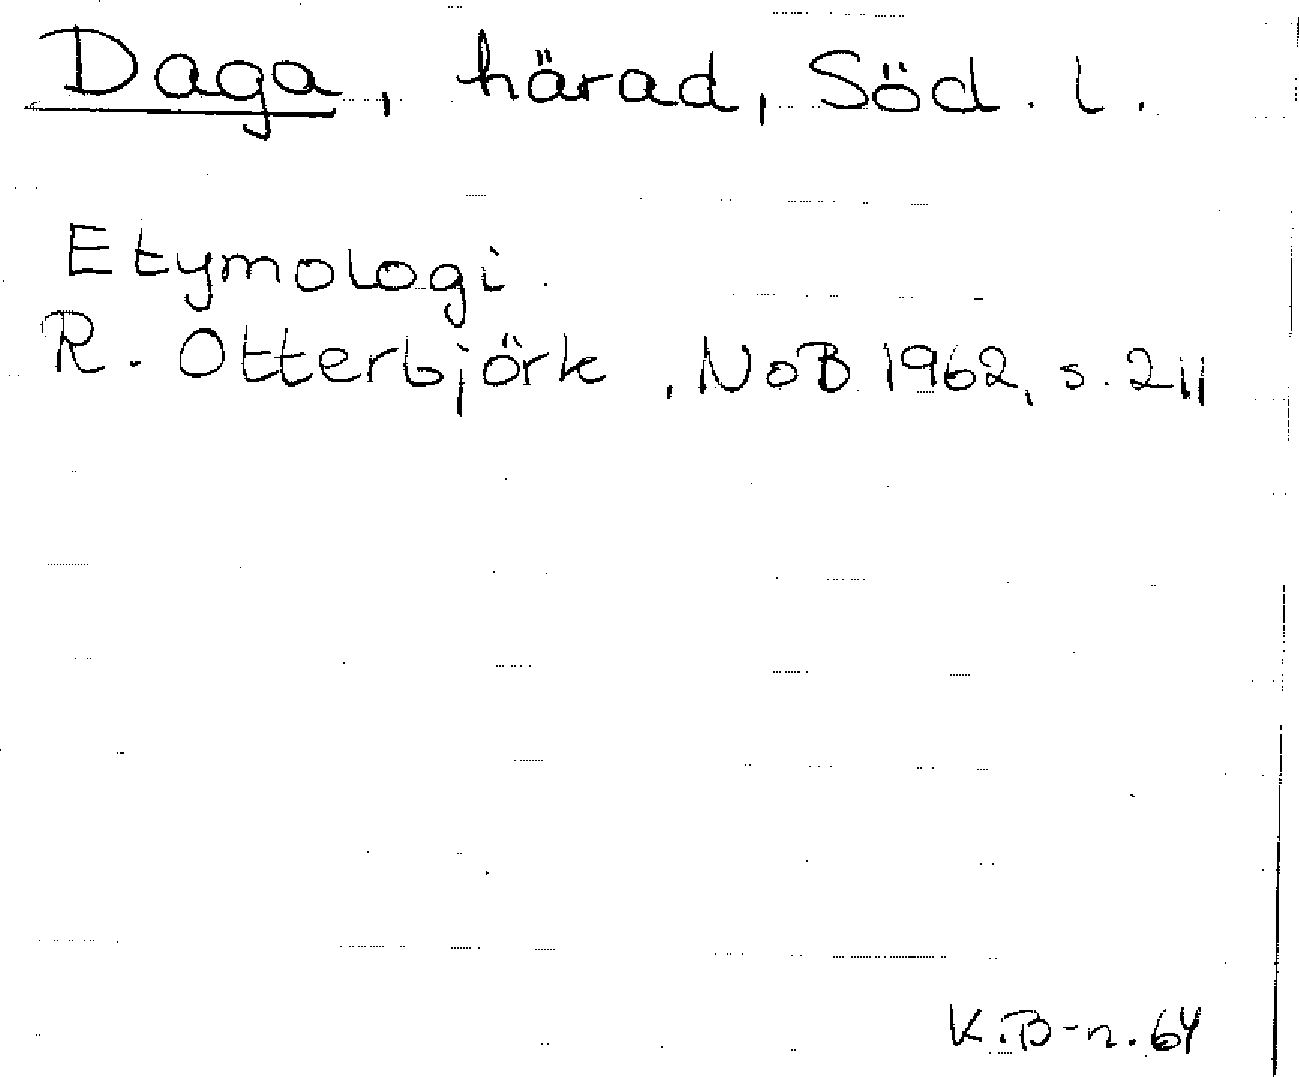 Daga, härad, Söd. l.
Etymologi.
R. Otterbjörk, NoB 1962, s. 211
K.B-n. 64